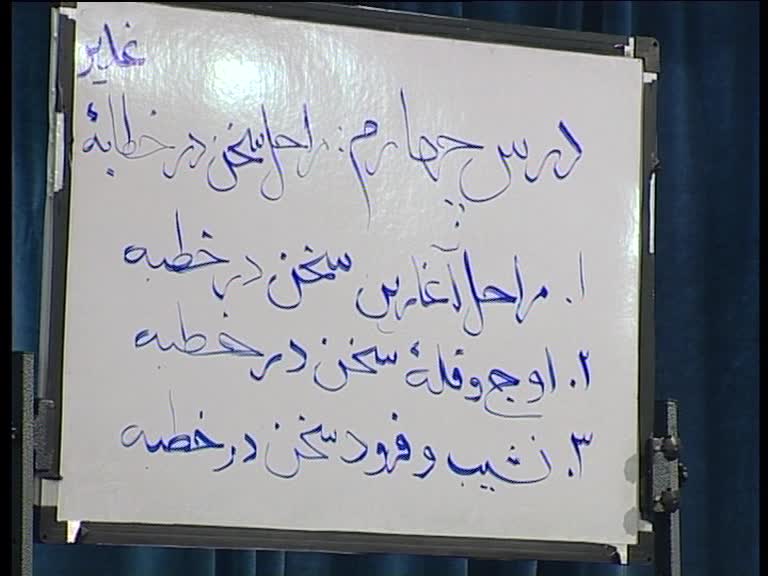 درس چهارم: مراحل سخن در خطابهٔ
غدیر
۱. مراحل آغازین سخن در خطبه
۲. اوج و قلهٔ سخن در خطبه
۳. نشیب و فرود سخن در خطبه